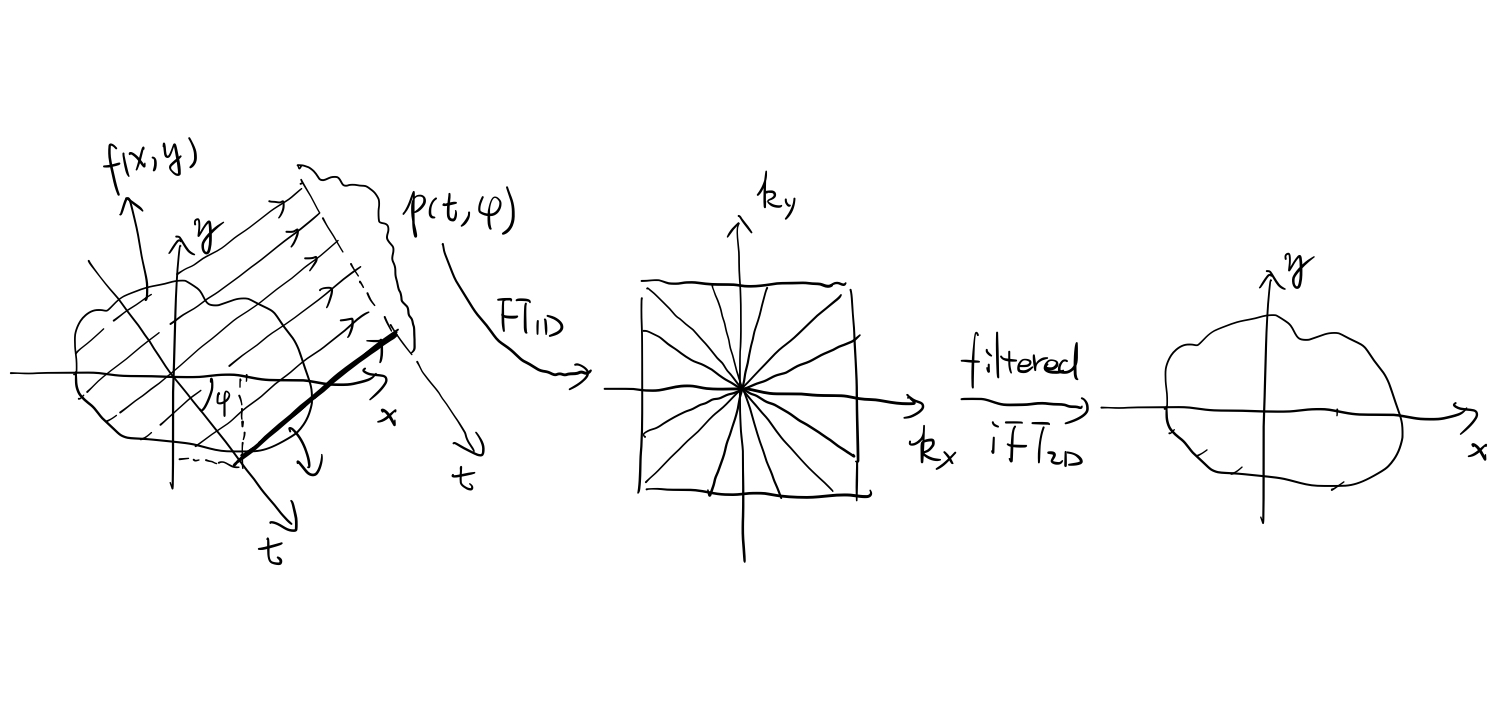 f(x,y)
y
φ
x
t
p(t,φ)
t
FT1D
ky
kx
filtered
iFT2D
y
x